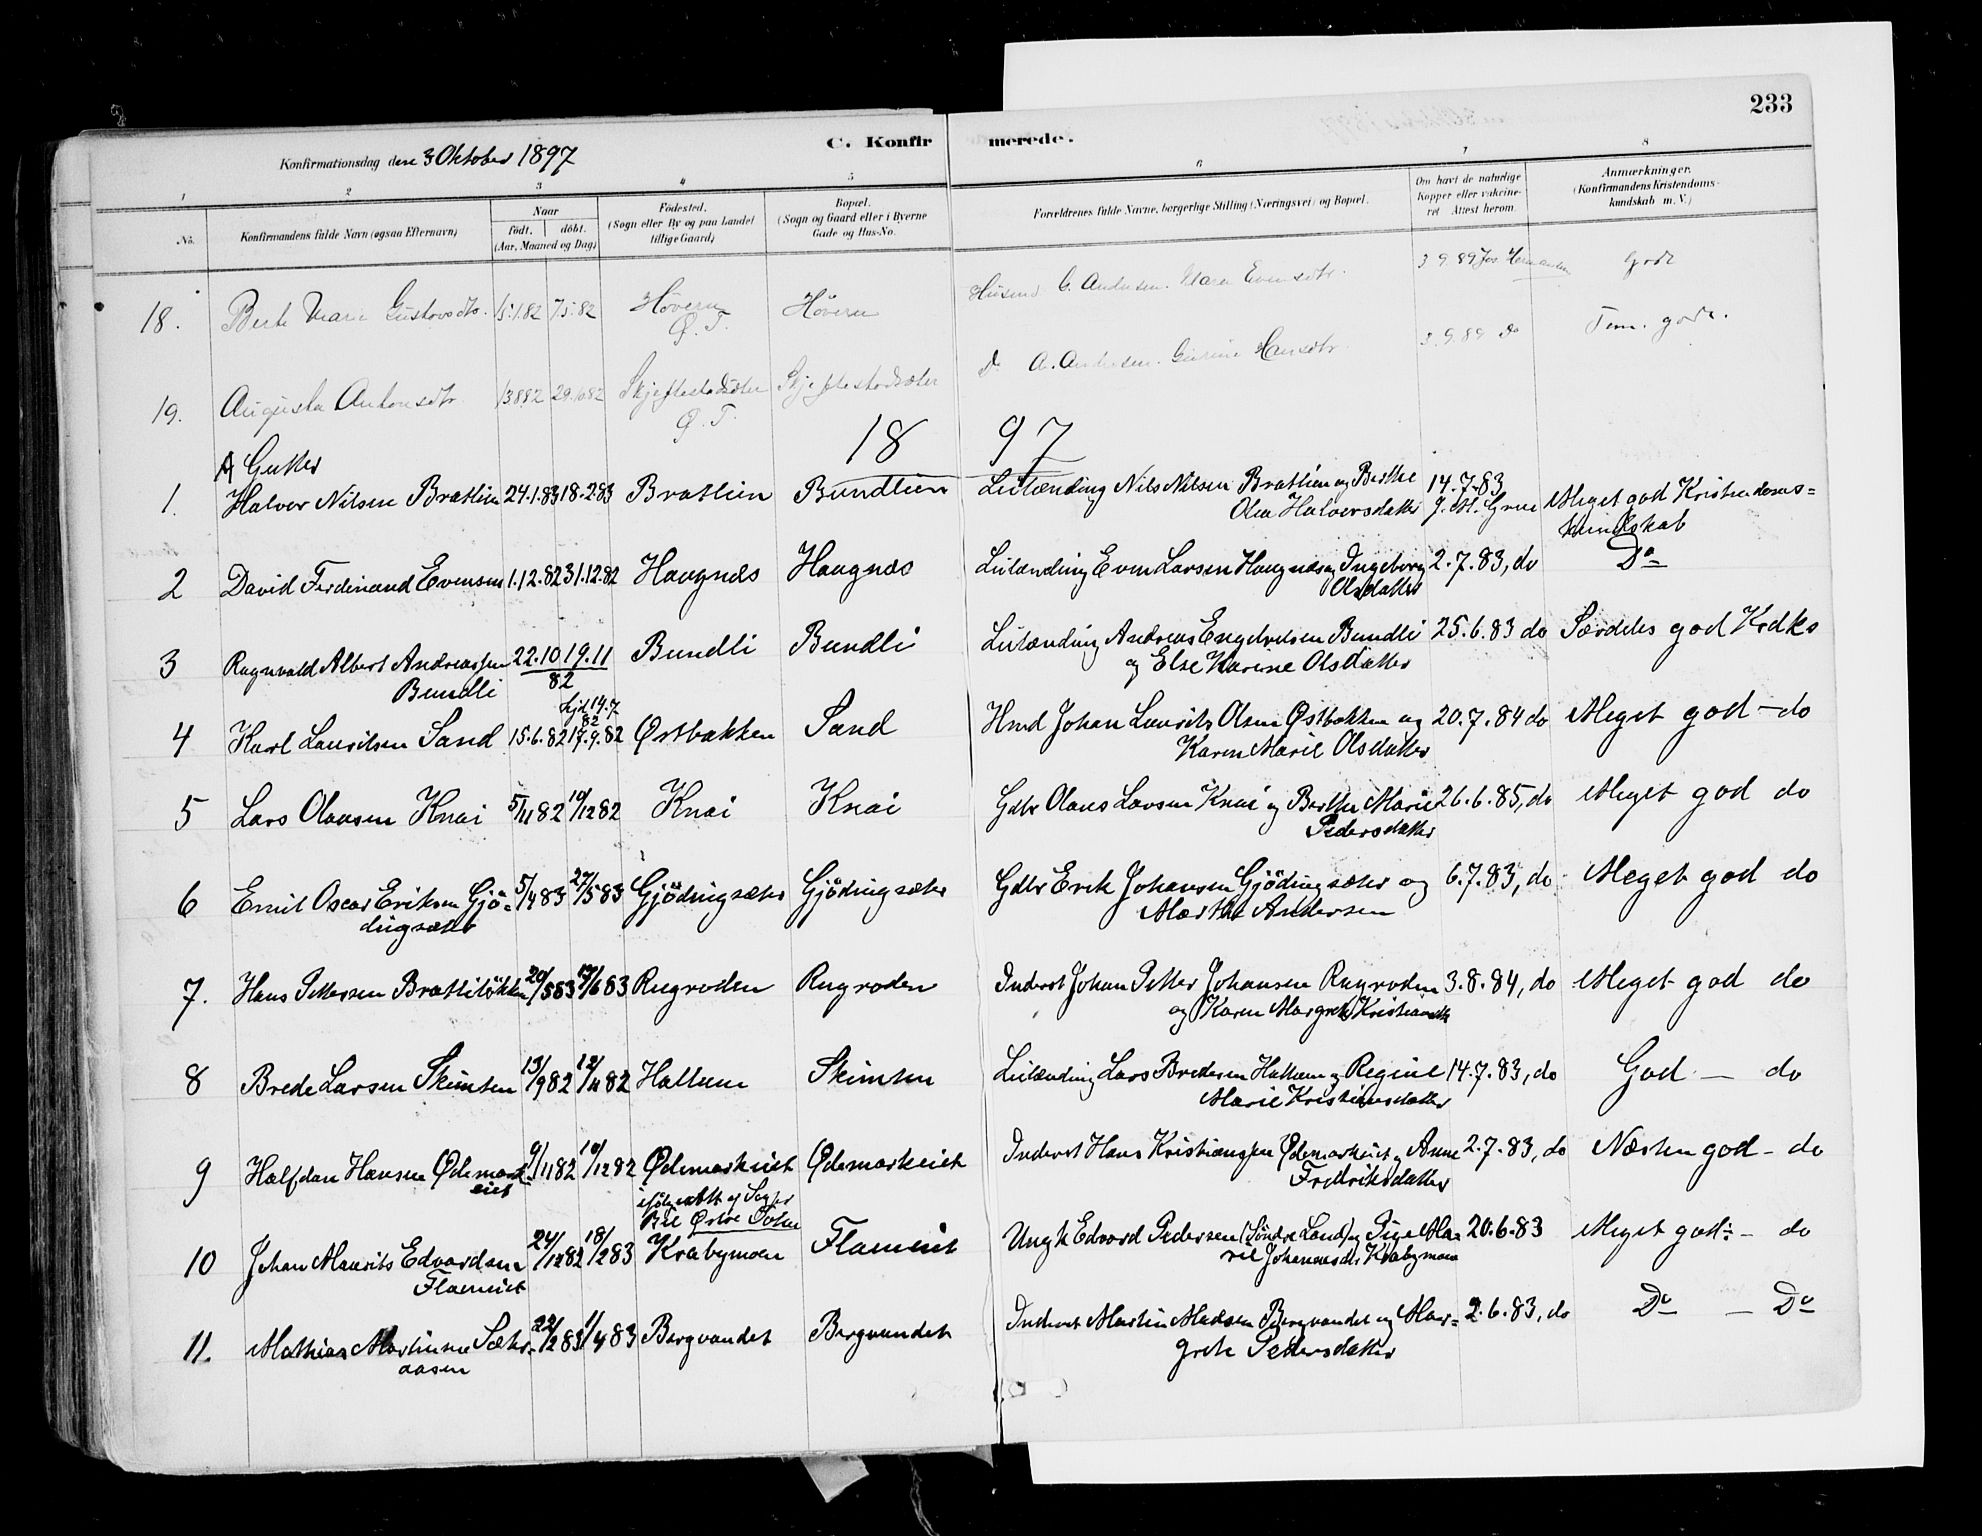 233
C. Konfirmerede.
Konfirmationsdag den 3 Oktober 1897
1 2 3 4 5 6 7 8
No. Konfirmandens fulde Navn (ogsaa Efternavn) Naar født. døbt. (Aar, Maaned og Dag) Fødested. (Sogn eller By og paa Landet tillige Gaard) Bopæl. (Sogn og Gaard eller i Byerne Gade og Hus-No. Forældrenes fulde Navne, borgerlige Stilling (Næringsvei) og Bopæl. Om havt de naturlige Kopper eller vakcineret. Attest herom. Anmærkninger. (Konfirmandens Kristendomskundskab m. V.)
18. Berte Marie Gustavsdtr. 15.1.82 7.5.82 Høvern Ø. T. Høvern Husmd G. Andersen. Maren Evensdtr. 3 9 89 godt
19. Augusta Antonsdtr. 13882 29.1082 Skjeftestadsæter Ø. T. Skjeftestadsæter Do A. Andersen. Gurine Hansdtr. 3.9.89 Do Tem. godt.
1897
A Gutter
1. Halvor Nilsen Bratlien 24.1.83 18.2.83 Bratlien Bundlien Leilænding Nils Nilsen Bratlien og Berthe 14.7.83 Meget god Kristendoms=
Olea Halvorsdatter J. M. Grue kundskab
2 David Ferdinand Evensen 1.12.82 31.12.82 Haugnæs Haugnæs Leilænding Even Larsen Haugnæs og Ingeborg 2.7.83, do Do
Olsdatter
3 Ragnvald Albert Andreassen 22.10 19.11 Bundli Bundli Leilænding Andreas Engebretsen Bundli 25.6.83 do Særdeles god Krdks
Bundli 82 og Else Karine Olsdatter
hjd 14.7
82
4 Karl Lauritsen Sand 15.6.82 17.9.82 Østbakken Sand Hmd Johan Laurits Olsen Østbakken og 20.7.84 do Meget god - do
Karen Marie Olsdatter
5 Lars Olausen Knai 5/11 82 10/12 82 Knai Knai Gdbr Olaus Larsen Knai og Berthe Marie 26.6.85, do Meget god do
Pedersdatter
6 Emil Oscar Eriksen Gjö= 5/4 83 27/5 83 Gjödingsæter Gjödingsæter Gdbr Erik Johansen Gjödingsæter og 6.7.83, do Meget god do
dingsæter Marthe Andersen
7. Hans Pettersen Brattiløkken 20/5 83 17/6 83 Rugroden Rugroden Inderst Johan Petter Johansen Rugroden 3.8.84, do Meget god do
og Karen Margrete Kristiansdtr
8 Brede Larsen Skimten 13/9 82 12/11 82 Hattum Skimten Leilænding Lars Bredesen Hattum og Regine 14.7.83, do God - do
Marie Kristiansdatter
9 Halfdan Hansen Ødemark= 9/11 82 10/12 82 Ødemarkeiet Ødemarkeiet Inderst Hans Kristianssen Ødemarkeiet og Anne 2.7.83, do Næsten god - do
eiet Fredriksdatter
ifølge att af Sogpr
Østre Toten
10 Johan Maurits Edvardsen 24/12 82 18/2 83 Krabymoen Flaeneiet Ungk Edvard Pedersen (Söndre Land) og Pige Ma= 20.6.83 Meget god ÷ - do
Flaeneiet rie Johannesdr Krabymoen
11. Mathias Martinsen Sæter= 22/2 83 1/4 83 Bergvandet Bergvandet Inderst Martin Madsen Bergvandet og Mar= 2.6.83, do Do - Do
aasen grete Pedersdatter